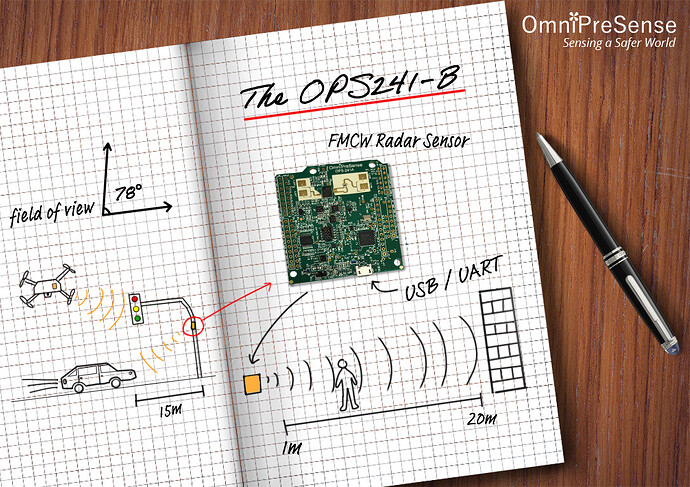 OmniPreSense
Sensing a Safer World
The OPS241-B
FMCW Radar Sensor
OmniPreSense
OPS-241A
78°
field of view
USB / UART
15m
1m
20m